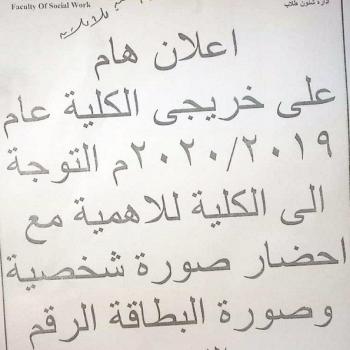 Faculty Of Social Work
ادارة شئون طلاب
اعلان هام
على خريجى الكلية عام
٢٠٢٠/٢٠١٩م التوجة
الى الكلية للاهمية مع
احضار صورة شخصية
وصورة البطاقة الرقم